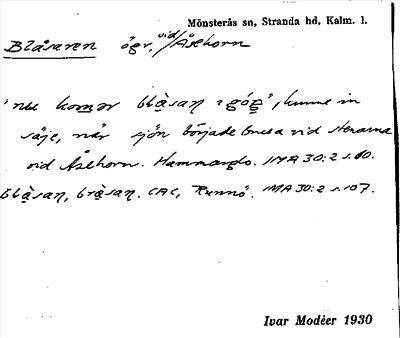 Mönsterås sn, Stranda hd, Kalm. l.
Blåsaren ögr, vid Åsehorn
'nu komər blåsan
säje, när sjön började brusa vid stenarna
vid Åsehorn. IMA 30:2 s. 60.
blåsan, bråsan. CAC, Runnö. IMA 30:2 s. 107.
Ivar Modéer 1930